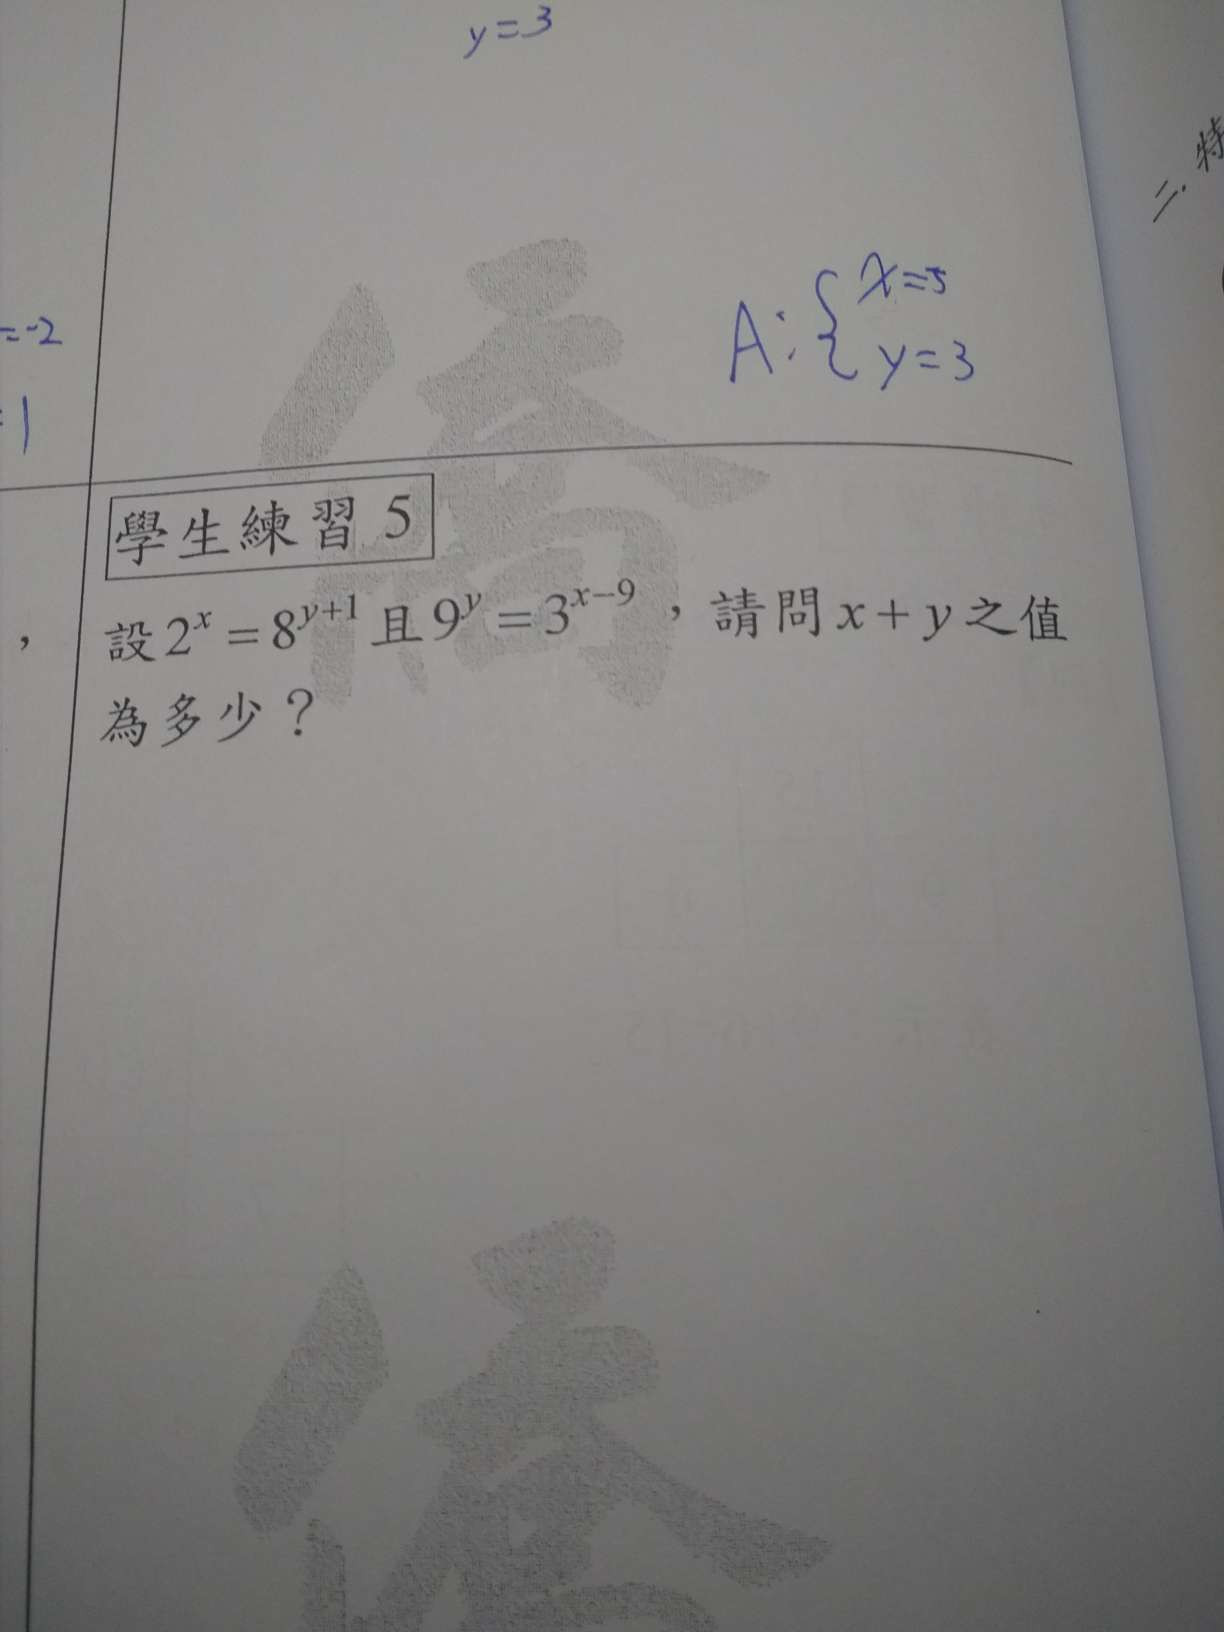 y=3
二. 特
A: { x=5
y=3
=-2
=1
學生練習 5
, 設 2^x = 8^{y+1} 且 9^y = 3^{x-9} ，請問 x+y 之值
為多少？